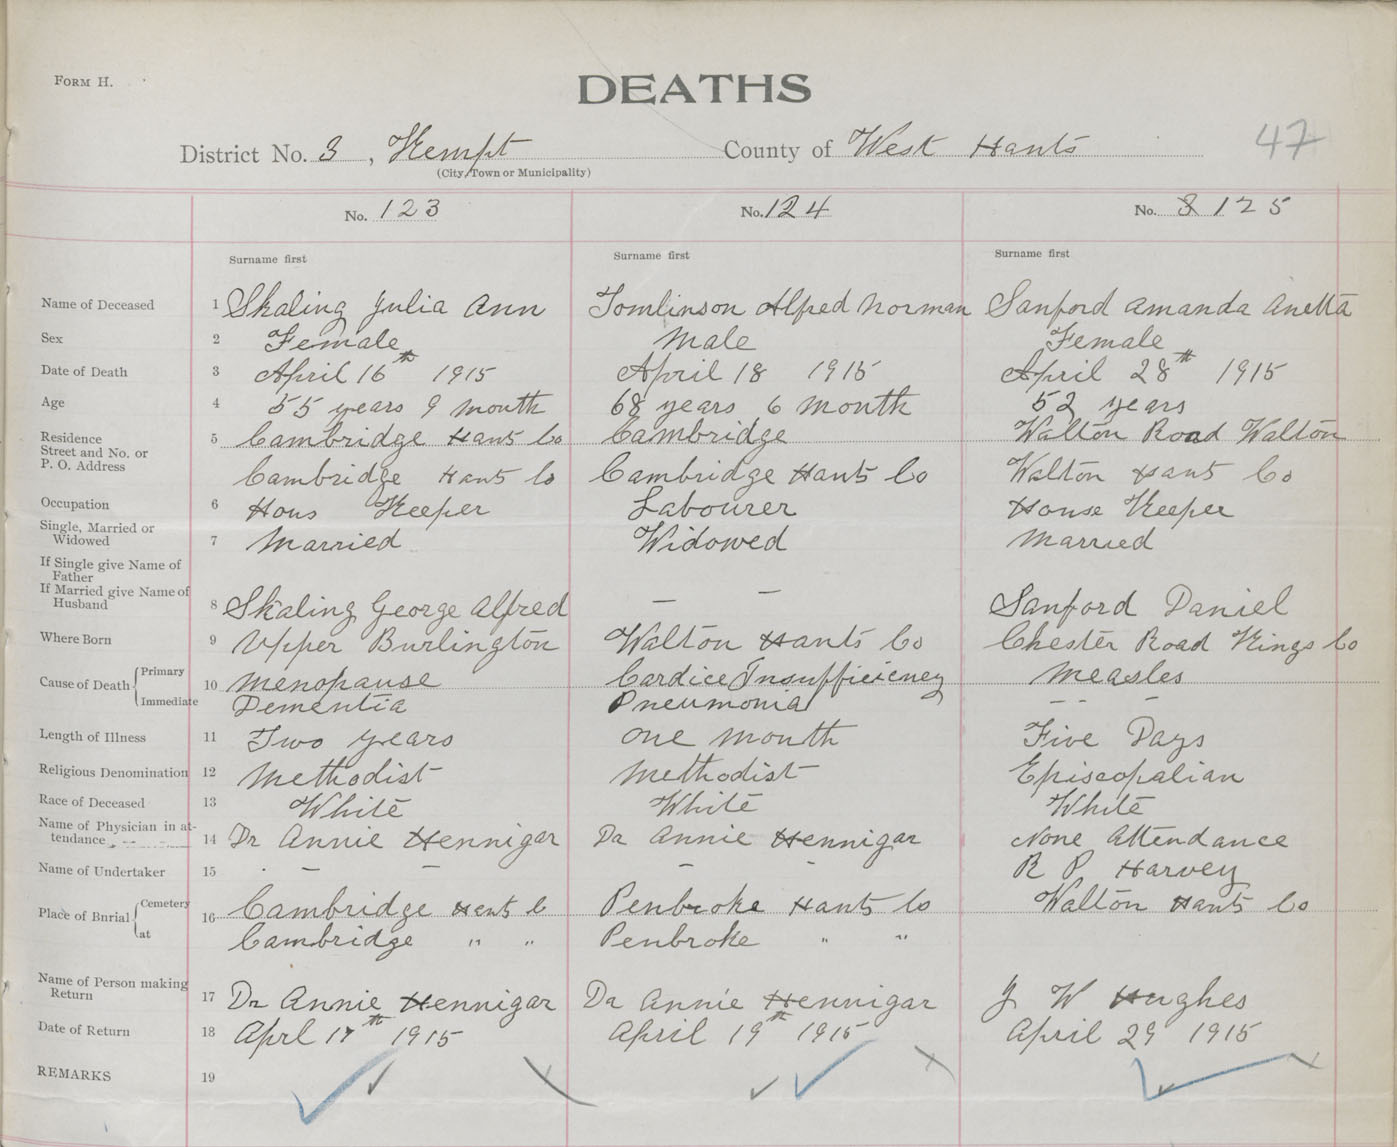 FORM H.
DEATHS
District No. 3, Kempt County of West Hants 47
(City, Town or Municipality)
No. 123 No. 124 No. 3 125
Surname first Surname first Surname first
Name of Deceased 1 Skaling Julia Ann Tomlinson Alfred Norman Sanford Amanda Anetta
Sex 2 Female Male Female
Date of Death 3 April 16th 1915 April 18 1915 April 28th 1915
Age 4 55 years 9 month 68 years 6 month 52 years
Residence 5 Cambridge Hants Co Cambridge Walton Road Walton
Street and No. or
P. O. Address Cambridge Hants Co Cambridge Hants Co Walton Hants Co
Occupation 6 Hous Keeper Labourer House Keeper
Single, Married or
Widowed 7 Married Widowed Married
If Single give Name of
Father
If Married give Name of
Husband 8 Skaling George Alfred — — Sanford Daniel
Where Born 9 Upper Burlington Walton Hants Co Chester Road Kings Co
Cause of Death Primary 10 Menopause Cardice Insufficiency Measles
Immediate Dementia Pneumonia – – –
Length of Illness 11 Two years One month Five Days
Religious Denomination 12 Methodist Methodist Episcopalian
Race of Deceased 13 White White White
Name of Physician in at-
tendance 14 Dr Annie Hennigar Dr Annie Hennigar None Attendance
Name of Undertaker 15 – – – – R P Harvey
Place of Burial Cemetery 16 Cambridge Hants C Penbroke Hants Co Walton Hants Co
at Cambridge " " Penbroke " "
Name of Person making
Return 17 Dr Annie Hennigar Dr Annie Hennigar J W Hughes
Date of Return 18 Aprl 17th 1915 April 19th 1915 April 29 1915
REMARKS 19